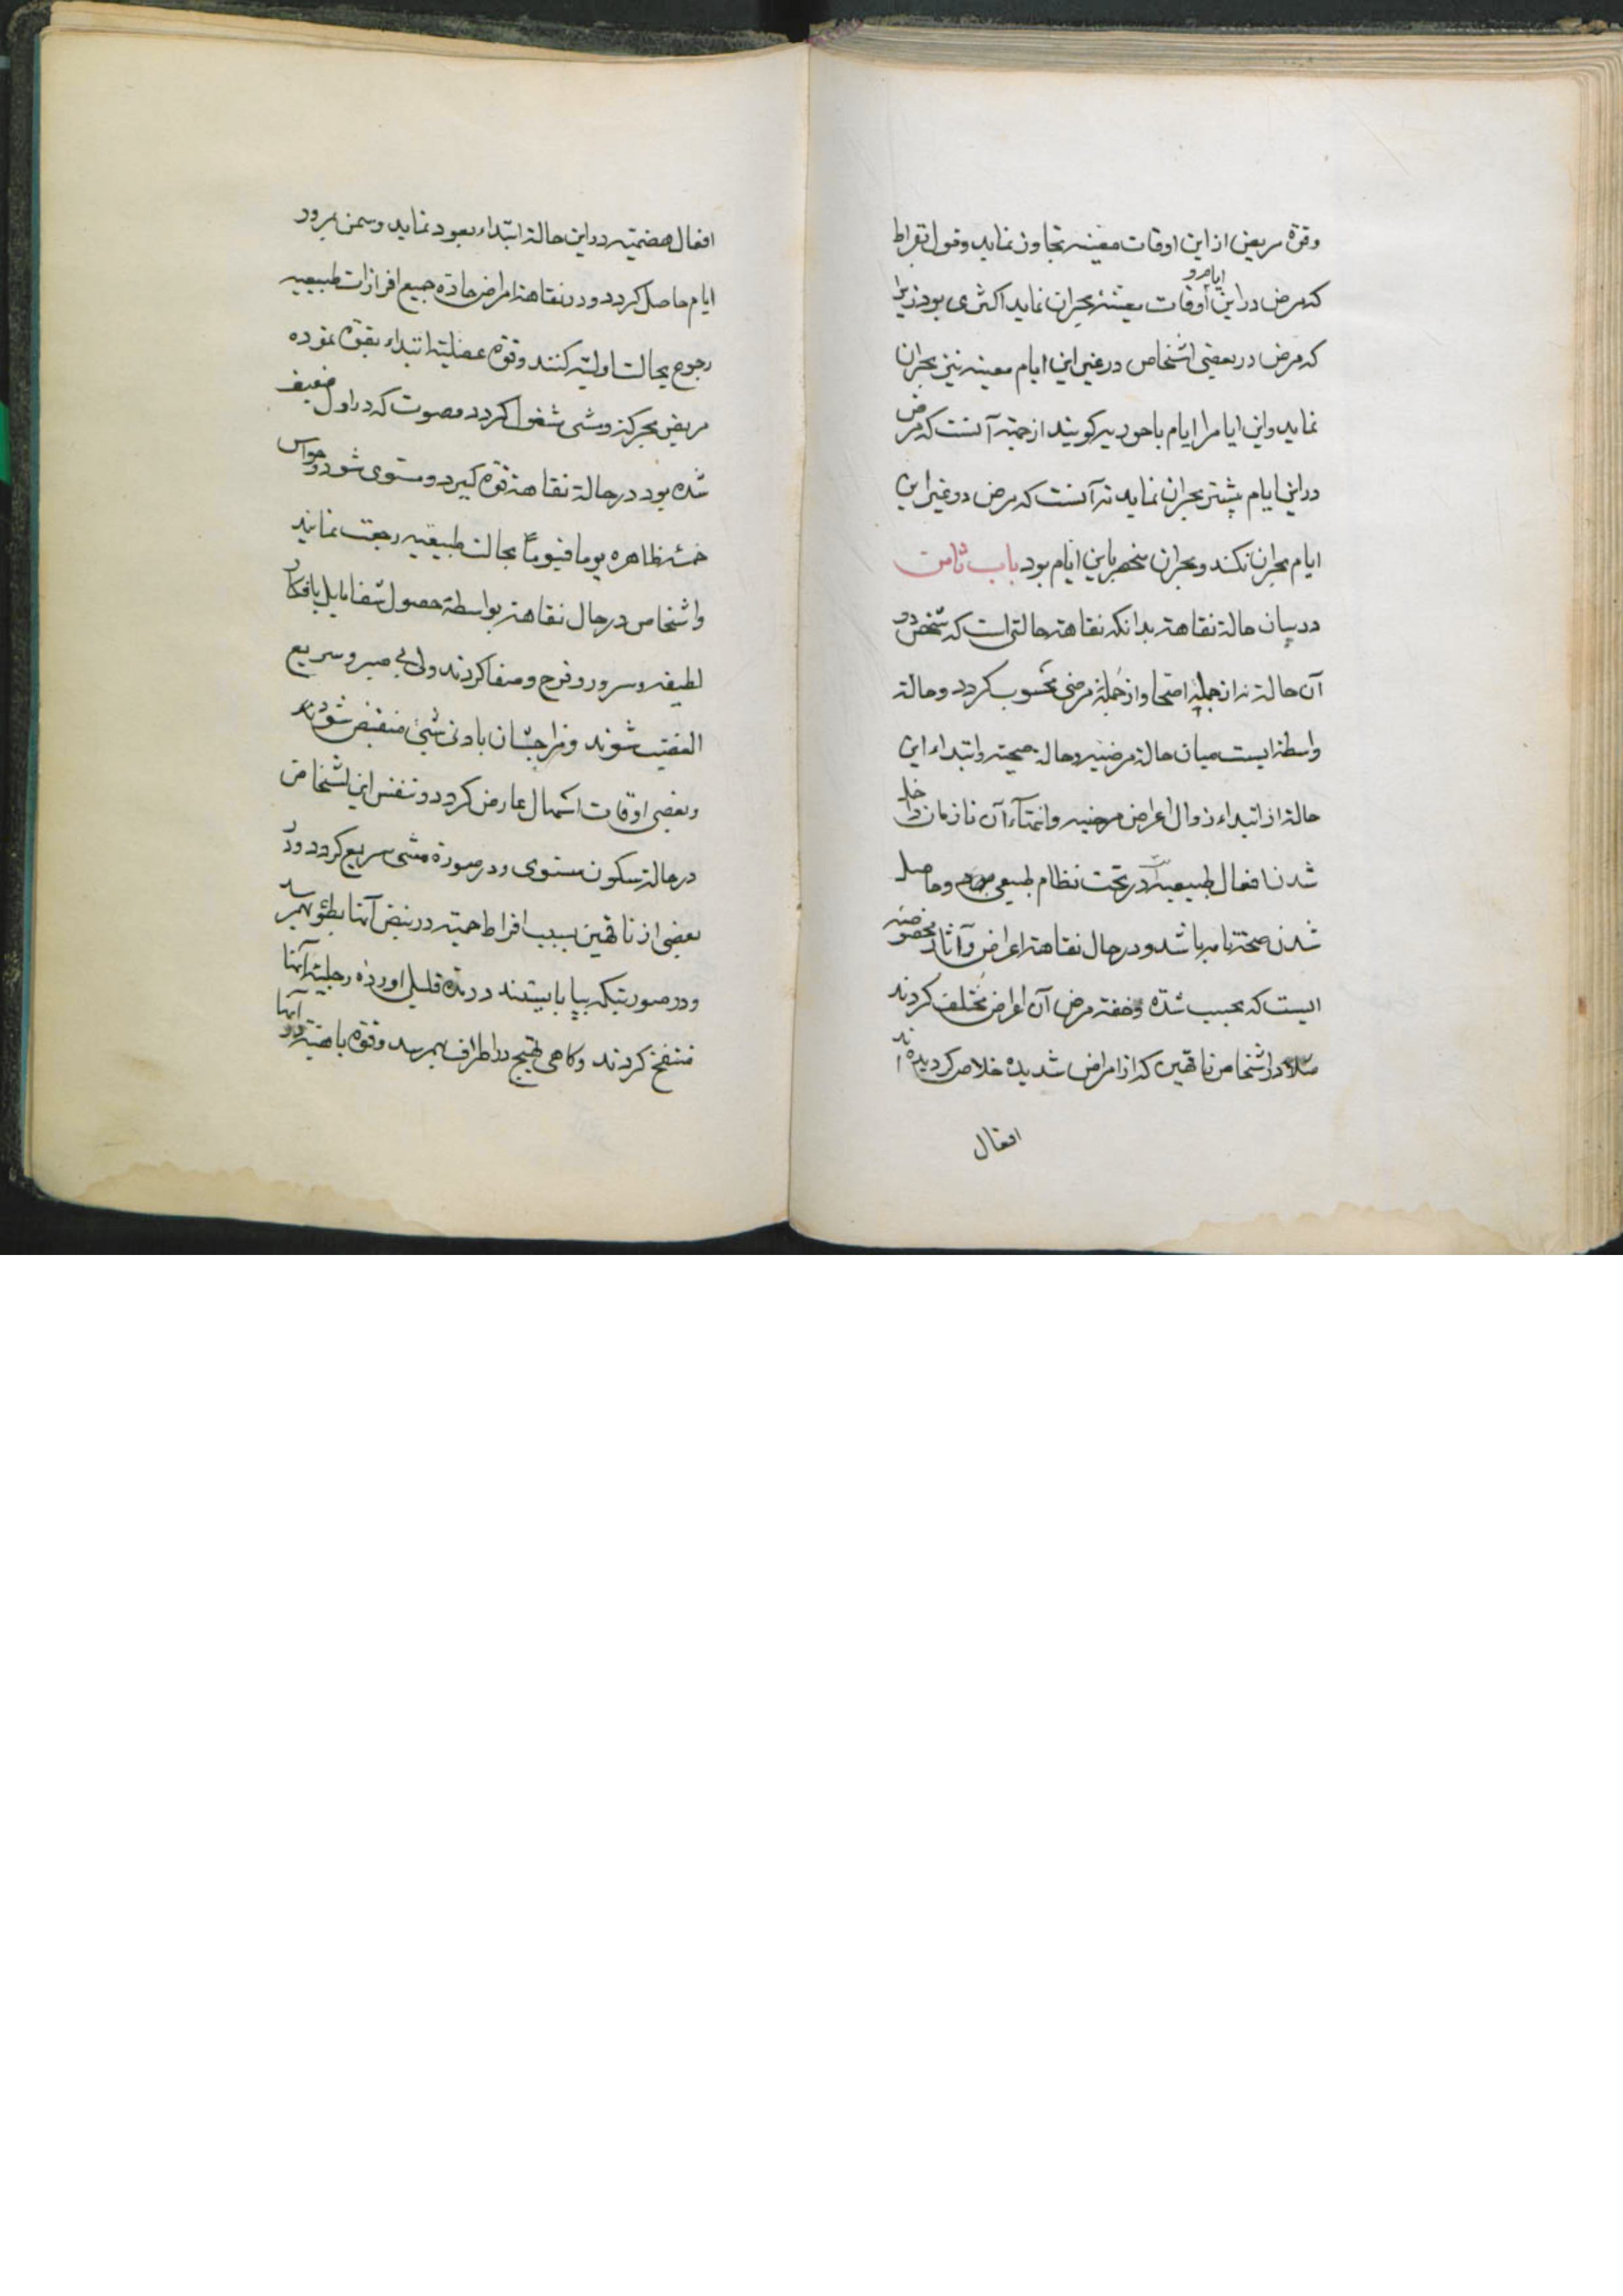 وقوة مریض از این اوقات معینه تجاوز نماید و قول بقراط
که مرض در این ایام و اوقات معینه بحران نماید اکثری بود زیرا
که مرض در بعضی اشخاص در غیر این ایام معینه نیز بحران
نماید و این ایام را ایام باحوریه کویند از جهة آنست که مرض
در این ایام بیشتر بحران نماید نه آنست که مرض در غیر این
ایام بحران نکند و بحران منحصر باین ایام بود باب ثامن
در بیان حالة نقاهة بدانکه نقاهة حالتی است که شخص در
آن حالة نه از جمله اصحا و از جمله مرضی محسوب کردد و حالة
واسطه ایست میان حالة مرضیه و حالة صحیة و ابتداء این
حالة از ابتداء زوال اعراض مرضیه و انتهاء آن تا زمان داخل
شدن افعال طبیعیه در تحت نظام طبیعی و حاصل
شدن صحة تامه باشد و در حال نقاهة اعراض و آثار مخصوصه
ایست که بحسب شدة و خفة مرض آن اعراض مختلف کردند
مثلا در اشخاص ناقهین که از امراض شدیده خلاص کردیده اند
افعال
افعال هضمیه در این حالة ابتداء بعود نماید و سمن بمرور
ایام حاصل کردد و در نقاهة امراض حاده جمیع افرازات طبیعیه
رجوع بحالت اولیه کنند و قوه عضلیه ابتداء بقوة نموده
مریض بحرکة و مشی مشغول کردد و صوت که در اول ضعیف
شده بود در حالة نقاهة قوة کیرد و مستوی شود و حواس
خمسه ظاهره یوما فیوماً بحالت طبیعیه رجعت نمایند
و اشخاص در حال نقاهة بواسطة حصول شفا مایل بافکار
لطیفه و سرور و فرح و صفا کردند ولی بی صبر و سریع
الغضب شوند و مزاجشان بادنی شیئ منقبض شود
و بعضی اوقات اسهال عارض کردد و تنفس این اشخاص
در حالة سکون مستوی و در صورة مشی سریع کردد و در
بعضی از ناقهین بسبب افراط حمیة در نبض آنها بطؤ بهم رسد
و در صورتیکه بپا بایستند در مدة قلیلی اورده رجلیه آنها
منتفخ کردند و کاهی تهیج در اطراف بهم رسد و قوه باهیه در آنها